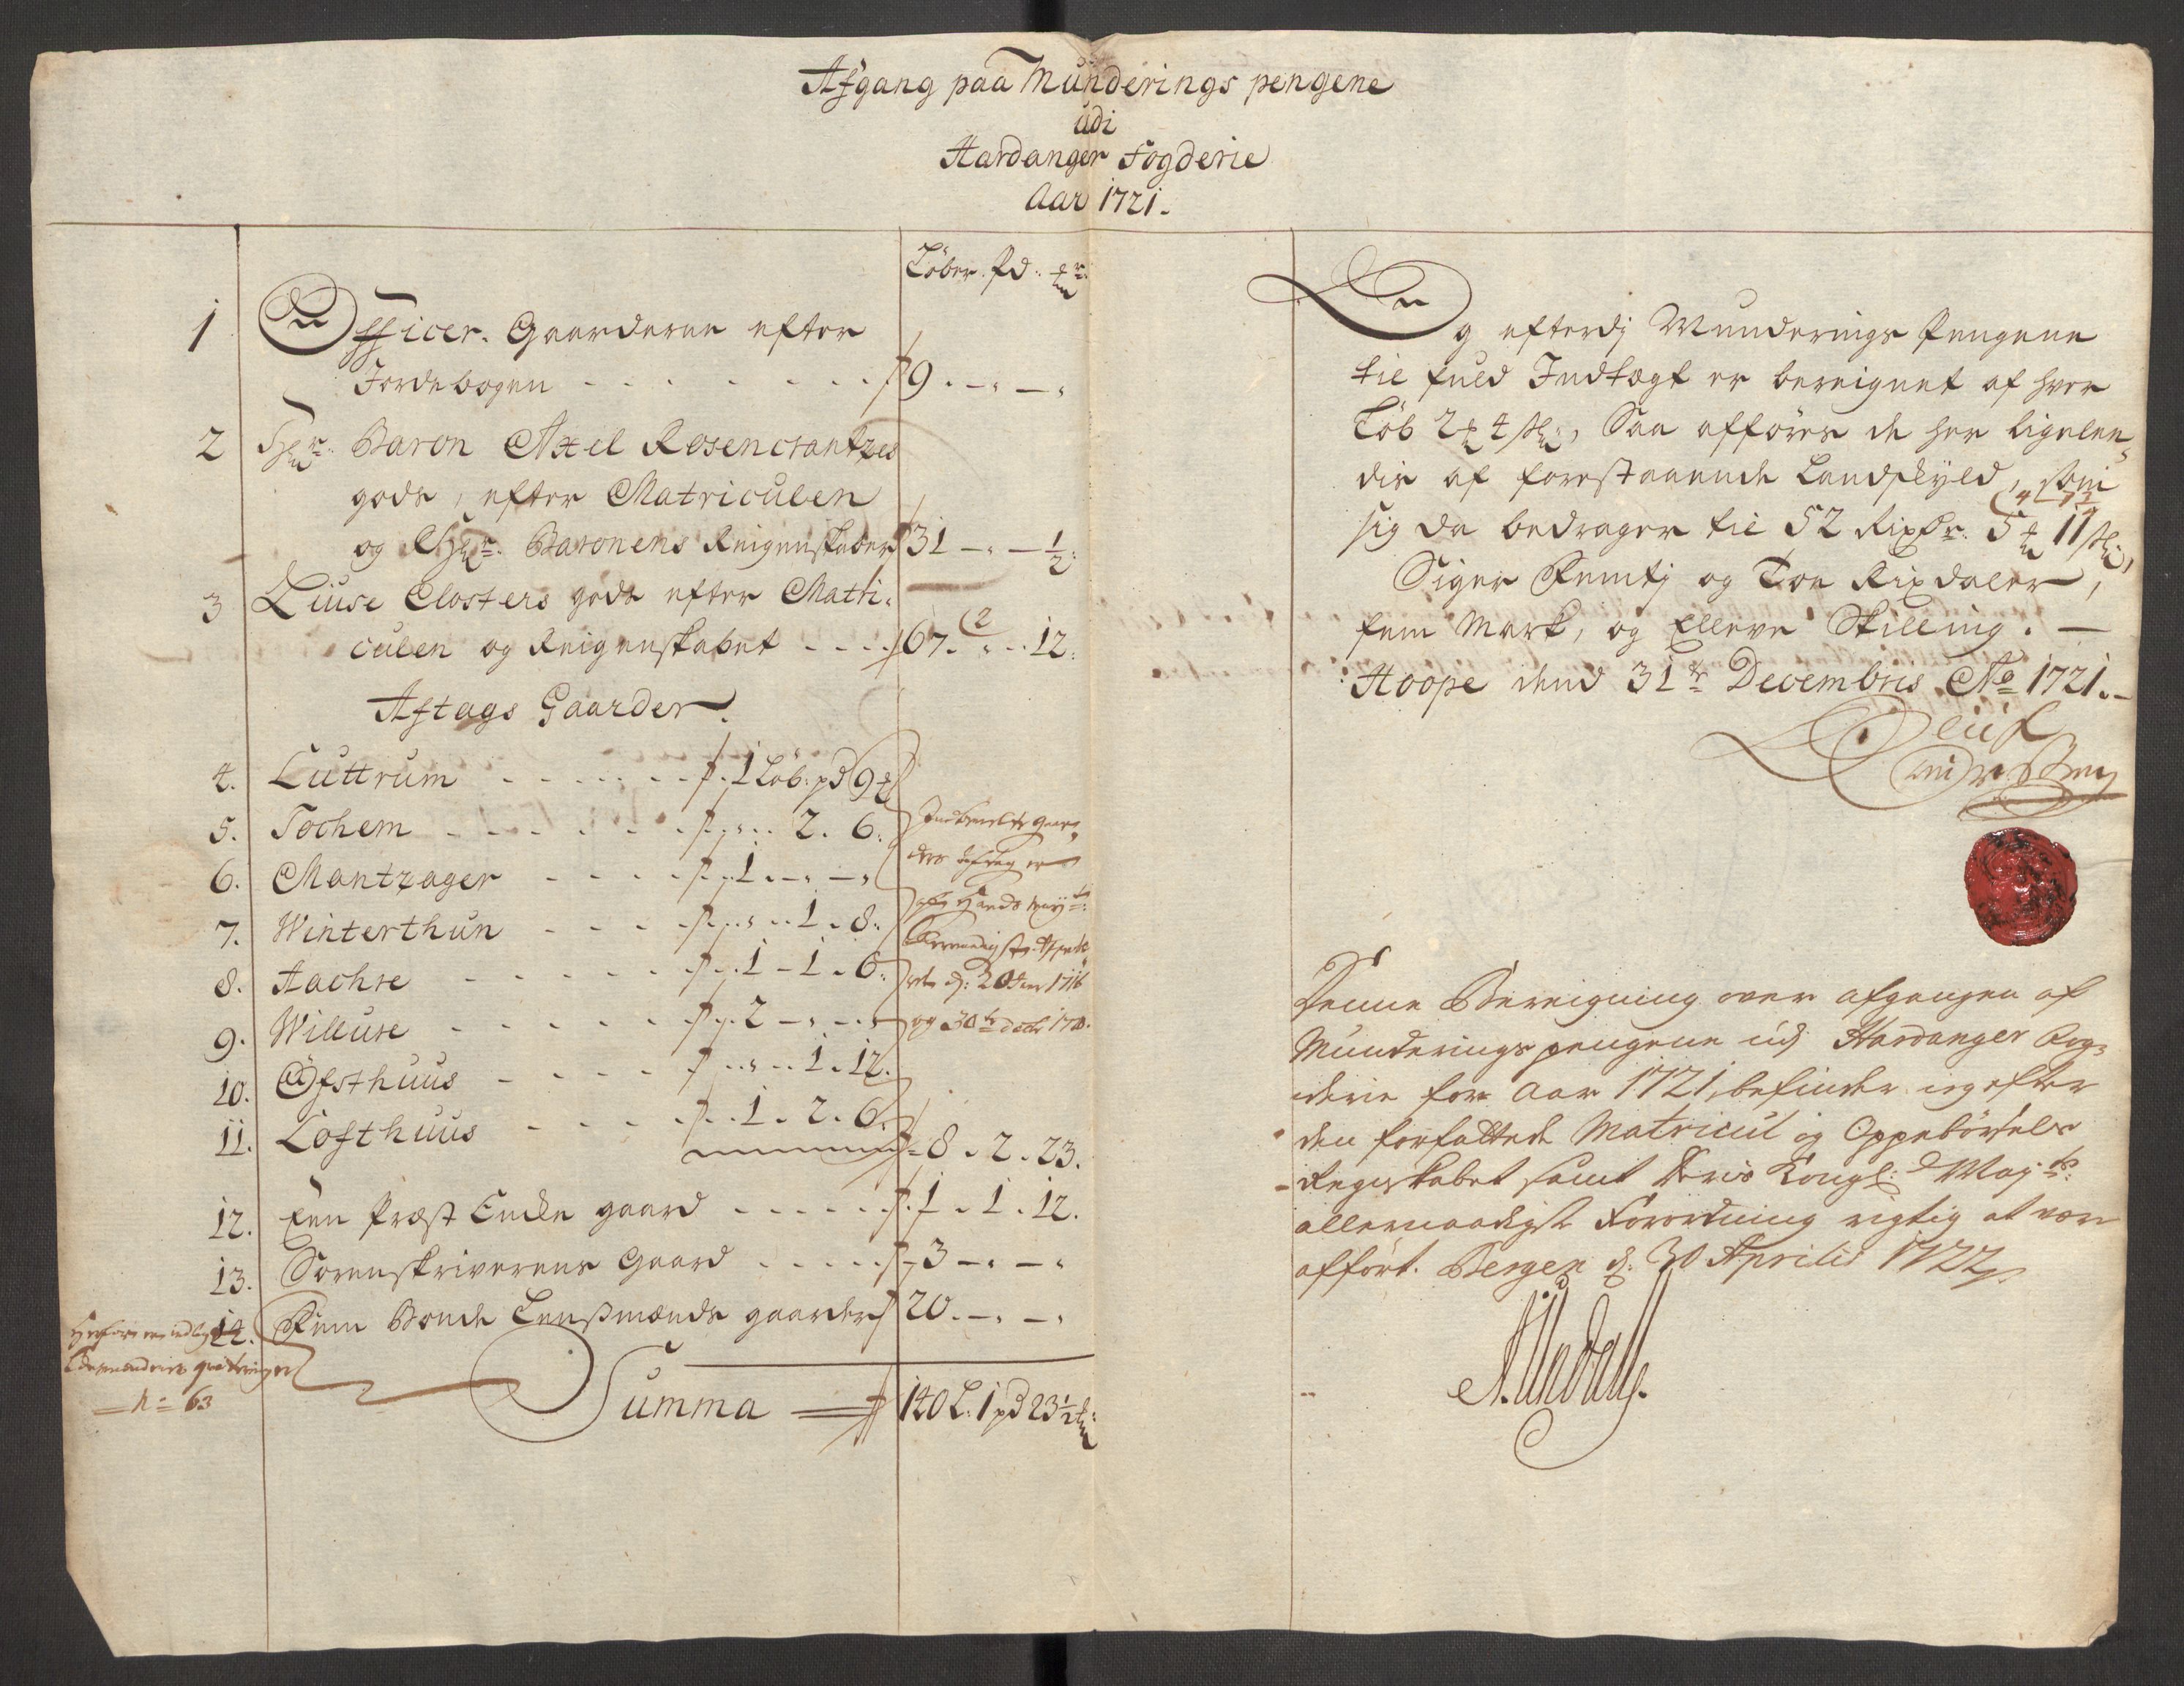 Afgang paa Munderings pengene
udi
Hardanger Fogderie
Aar 1721.
Löber. Pd:
1 Officer. Gaarderne efter
Jordebogen 9. -. -.
2 Hr. Baron Axel Rosencrantzes
gods, efter Matriculen
og Hr. Baronens Reigenskaber 31 -. - 1/2:
3 Liuse Closters gods efter Matri-
culen og Reigenskabet 67. 2 . 12:
Aftags Gaarder.
4. Luttrum 1 Löb: pd 9
5. Tochem 2. 6:
6. Mantzager 1. -. -.
7. Winterthun 1. 8:
8. Aachre 1 - 1. 6:
9. Willure 2 -. -.
10. Öfsthuus 1. 12.
11. Lofthuus 1. 2. 6.
8. 2. 23.
gaar-
ders er
Hands
1716
og 30
12. Een Præst Encke gaard 1. 1. 12.
13. Sorenskriverens Gaard 3 -. -.
14. Fem Bonde Lensmænds gaarder 20. -. -.
qvitteringer
N: 63
Summa 140 L: 1 pd 23 1/2
Og efterdj Munderings Pengene
til fuld Indtægt er bereignet af hver
Löb 2 4 sk:, Saa afföres de her ligeleu-
dis af forestaaende Landskyld, som
4 7 1/2
sig da bedrager til 52 Rixdr. 5 11 sk:,
Siger Femtj og Toe Rixdaler,
fem Mark, og Elleve Skilling. -
Hoope dend 31te Decembris Ao 1721. -
Denne Bereigning over afgangen af
Munderings pengene udj Hardanger Fog-
derie for Aar 1721, befindes ieg efter
den forfattede Matricul og Oppebörsels
Regnskabet samt Deris Kongl: Majts:
allernaadigste Forordning rigtig at være
afført. Bergen d: 30 Aprilis 1722